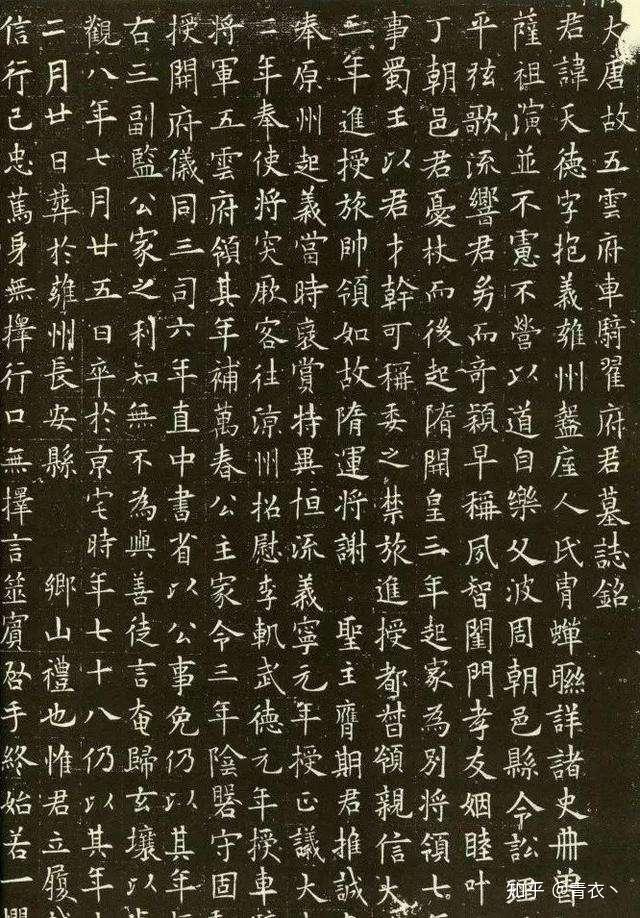 大唐故五雲府車騎翟府君墓誌銘
君諱天德字抱義雄州盩厔人氏胄蟬聯詳諸史冊曾
薩祖演並不憲不營以道自樂父波周朝邑縣令訟
平弦歌流響君㓜而奇穎早稱夙智閨門孝友姻睦叶
丁朝邑君憂杖而後起隋開皇三年起家為別將領七
事蜀王以君才幹可稱委之禁旅進授都督領親信大
三年進授旅帥領如故隋運將謝 聖主膺期君推誠
奉原州起義當時裒賞特異恒流義寧元年授正議大
二年奉使將突厥客往涼州招慰李軌武德元年授車
將軍五雲府領其年補萬春公主家令三年陰磐守固
授開府儀同三司六年直中書省以公事免仍以其年
右三副監公家之利知無不為興善徒言奄歸玄壤以
觀八年七月廿五日卒於京宅時年七十八仍以其年
二月廿日葬於雍州長安縣 鄉山禮也惟君立履
信行己忠篤身無擇行口無擇言筮賓啓手終始若一
知乎 @青衣丶